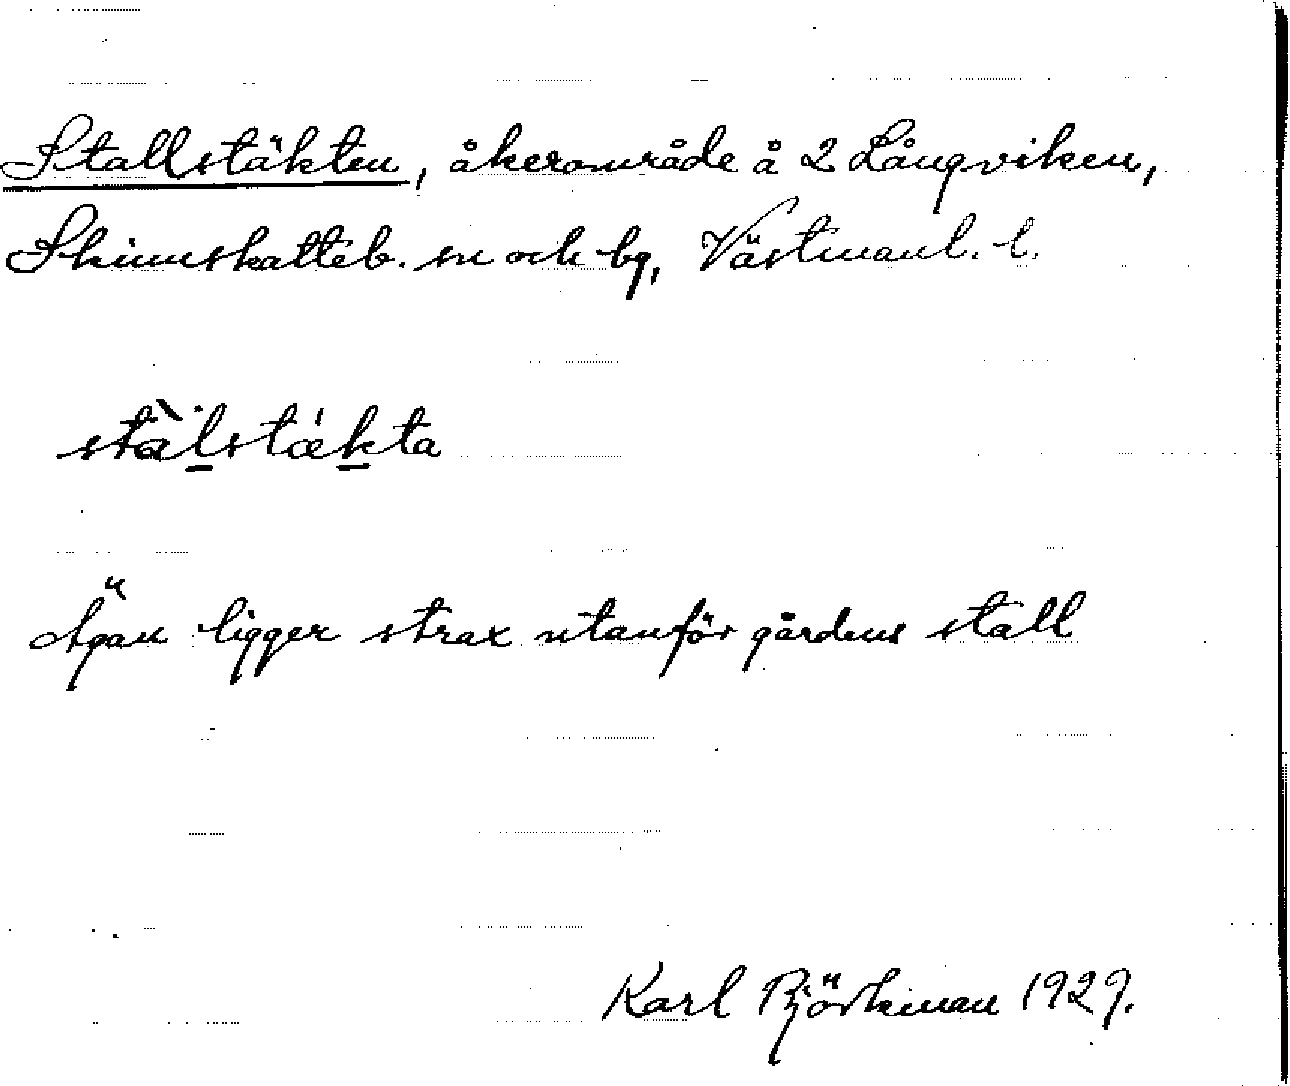 Stallstäkten, åkerområde å 2 Långviken,
Skinnskatteb. sn och bg, Västmanl. l.
stàlstǽkta
Ägan ligger strax utanför gårdens stall
Karl Björkman 1929.